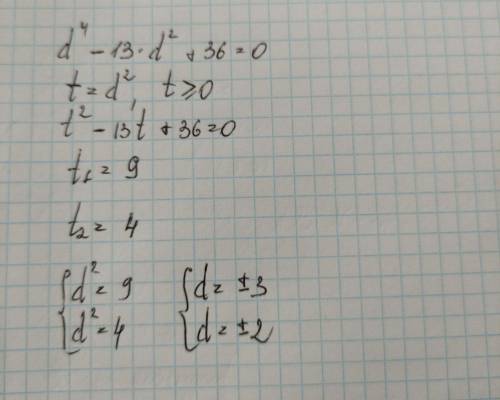 d⁴ - 13·d² + 36 = 0
t = d², t ≥ 0
t² - 13t + 36 = 0
t₁ = 9
t₂ = 4
{ d² = 9 { d = ±3
{ d² = 4 { d = ±2